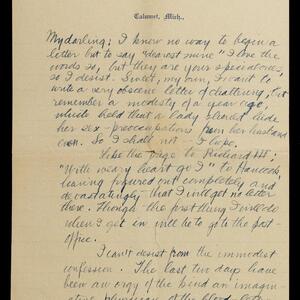 Calumet, Mich.,
My darling: I know no way to begin a
letter but to say "dearest mine" I love the
words so, but they are your special ones,
so I desist. Sweet, my own, I want to
write a very obscene letter of chattering, but
remember a modesty of a year ago,
which held that a lady should hide
her sex-preoccupations from her husband
even. So I shall not - I hope.
Like the page to Richard III;
"With weary heart go I" to Hancock,
having figured out completely and
devastatingly that I will get no letter
there. Though the first thing I will do
when I get in will be to go to the post-
office.
I can't desist from the immodest
confession. The last two days have
been an orgy of the